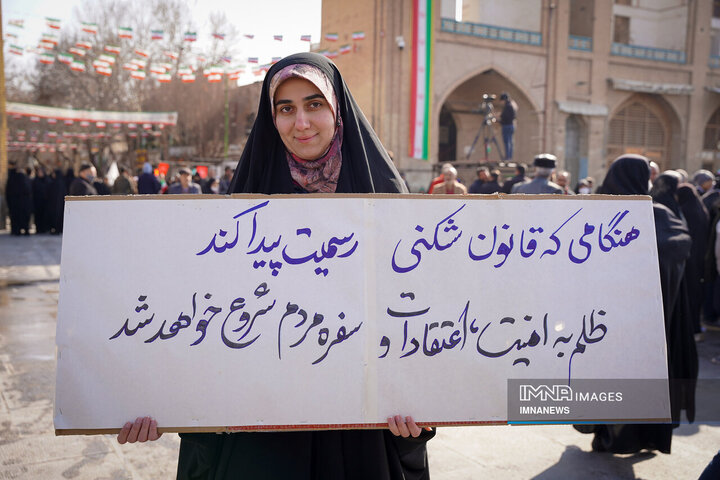 هنگامی که قانون شکنی رسمیت پیدا کند
ظلم به امنیت، اعتقادات و سفره مردم شروع خواهد شد
IMNA IMAGES
IMNANEWS